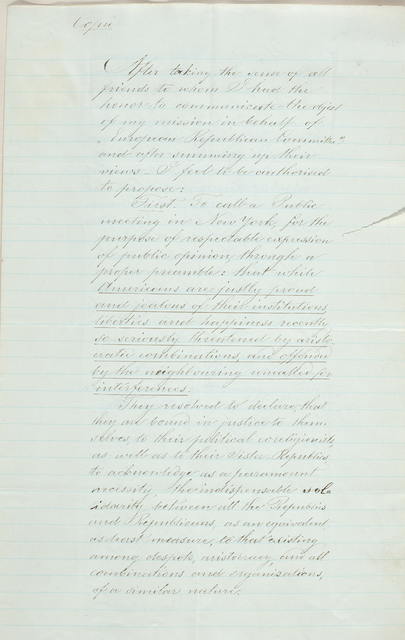 Copie
After taking the sense of all
friends to whom I had the
honor to communicate the object
of my mission in behalf of
„European Republican Committee"
and after summing up their
views – I feel to be authorised
to propose:
First. To call a Public
meeting in New York, for the
purpose of respectable expression
of public opinion through a
proper preamble: that while
Americans are justly proud
and jealous of their institutions,
liberties and happiness recently
so seriously threatened by aristo-
cratic combinations, and
by the neighbouring uncalled for
interferences.
They resolved to declare, that
they are bound in justice to them-
selves, to their political coreligionists,
as well as to their sister Republics
to acknowledge as a paramount
necessity the indispensable sol-
idarity between all the Republics
and Republicans, as an equivalent
as least measure, to that existing
among despots, aristocracy, and all
combinations and organisations,
of a similar nature.